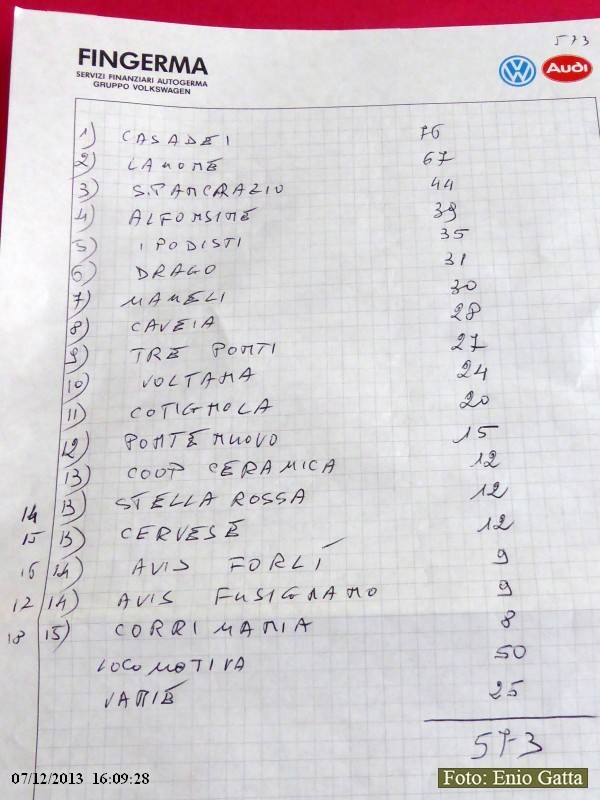 573
FINGERMA
SERVIZI FINANZIARI AUTOGERMA
GRUPPO VOLKSWAGEN
Audi
1) CASADEI 76
2) LAMONE 67
3) S.PANCRAZIO 44
4) ALFONSINE 39
5) I PODISTI 35
6) DRAGO 31
7) MAMELI 30
8) CAVEIA 28
9) TRE PONTI 27
10) VOLTANA 24
11) COTIGNOLA 20
12) PONTE NUOVO 15
13) COOP CERAMICA 12
14 13) STELLA ROSSA 12
15 13) CERVESE 12
16 14) AVIS FORLÍ 9
17 14) AVIS FUSIGNANO 9
18 15) CORRI MANIA 8
LOCOMOTIVA 50
VARIE 25
573
07/12/2013 16:09:28
Foto: Enio Gatta